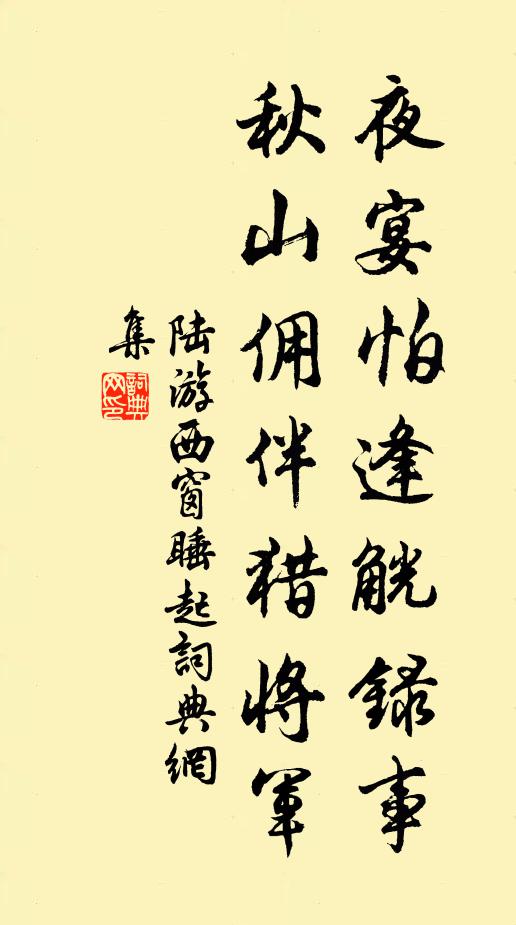 夜宴怕逢觥録事
秋山佣伴猎将軍
陆游西窗睡起詞典網
集
詞典
网印